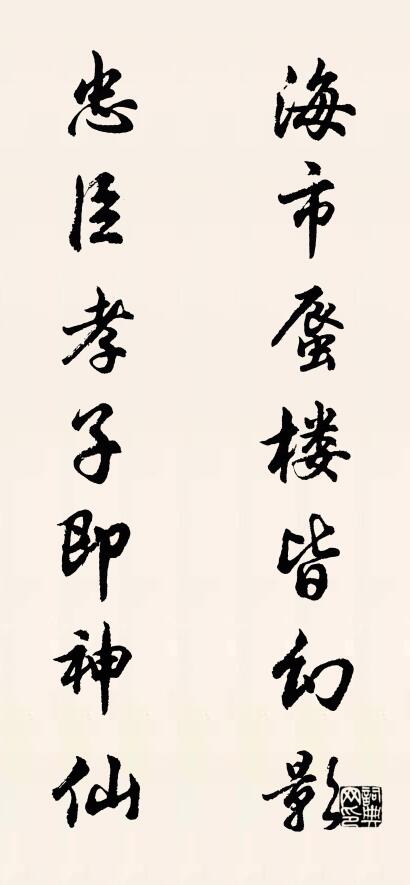 海市蜃楼皆幻影
忠臣孝子即神仙
詞典
网印